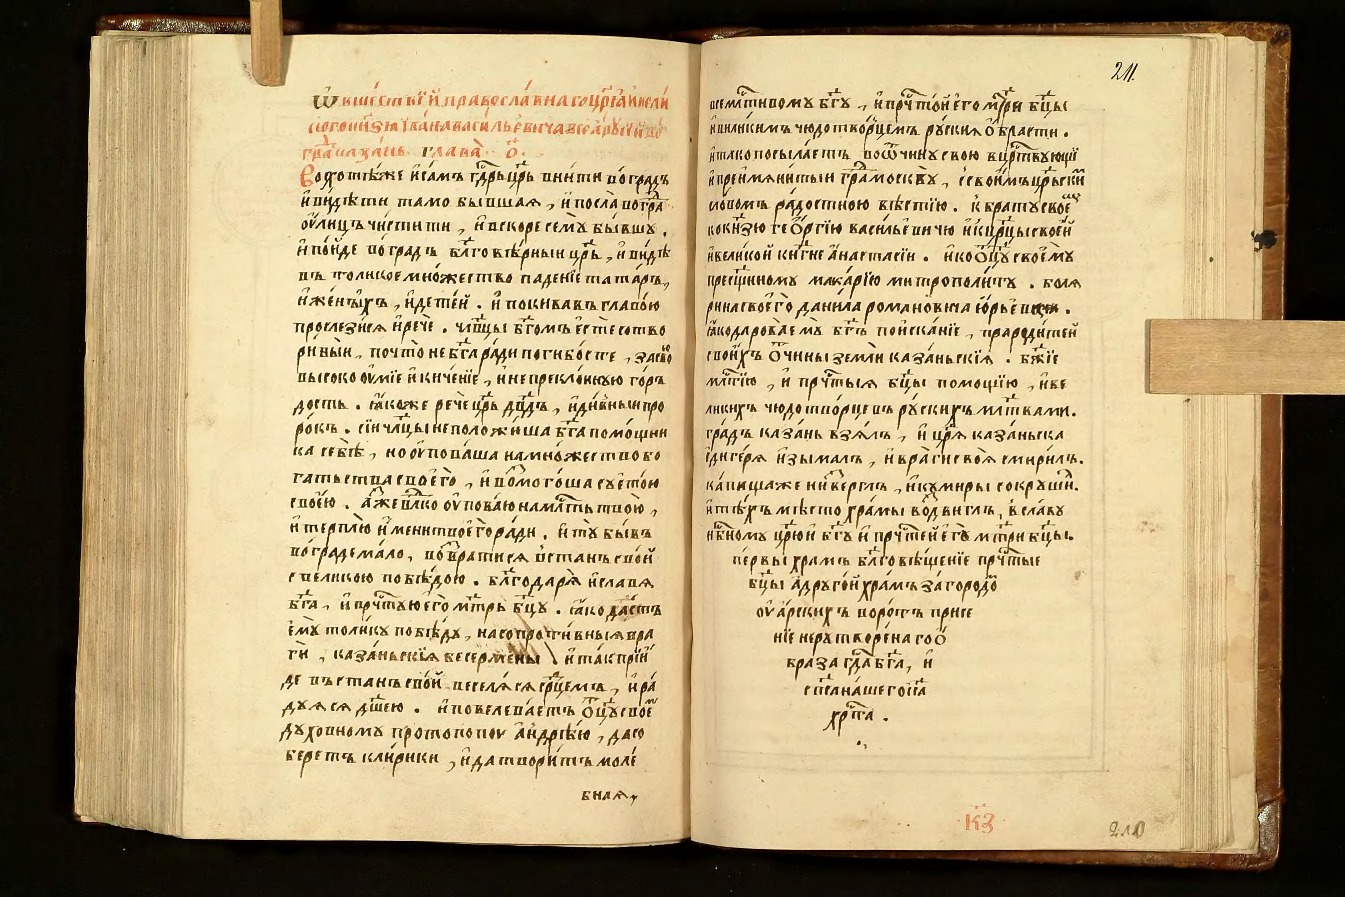 Ѿ шествїй православнаго црѧ и вели
когокнѧзѧ їѡанавасильевича всеарусїи во
гра казань. глава. о҃.
Восхотѣже исамъ гдрьцрь внити воградъ
ивидѣти тамо бывшая, ипосла вогра
оулицъ чистити, ивскоре семꙋ бывшꙋ.
ипойде воградъ блговѣрныи црь, ивидѣ
въ толикоемножество паденїе татаръ,
иженъихъ, идетей. и покивавъ главою
прослезися ирече. ѡчлвцы бгомъ естесотво
рѣныи, почто небгаради погибосте, засво
высокооумїе икиченїе, инепреклоннꙋю гор
дость. ꙗкоже рече црь двдъ, идивныи про
рокъ. сїи члвцы неположиша бга помощни
ка себѣ, ноуповаша намножествобо
гатьства своего, ивозмогоша суетою
своею. азжевлко оуповаю намлть твою,
итерплю именитвоегоради. итꙋ бывъ
воградемало, возвратися встанъсвой
свеликою побѣдою. блгодаря иславя
бга, ипрчтꙋюего мтрь бцꙋ. ꙗко дастъ
емꙋ толикꙋ побѣдꙋ, насопротивныявра
ги, казаньскїя бесермены. итакпрїи
де въстанъсвой веселяся срдцемъ, ира
дꙋяся дшею. иповелеваетъ ѿцꙋ своемꙋ
дꙋховномꙋ протопопоу андрѣю, дасо
беретъ клирики, идатворитъмоле
бная,
211.
всемлтивомꙋ бгꙋ, ипрчтойего мтри бцы
ивеликимъ чюдотворцемъ рꙋския области.
итакопосылаетъ воѿчинꙋ свою вцртвующїй
ипреимянитыи градмосквꙋ, сасвоимъцрьски
словомъ радостною вѣстїю. кбратꙋсвоемꙋ
кокнзю георгїю васильевичю икцрцысвоей
ивеликой кнгне анастасїи. икоѿцꙋсвоемꙋ
пресщнномꙋ макарїю митрополитꙋ. боля
ринасвоего данила романовича юрьевича.
ꙗкодаровавемъ бгъ поисканїе, прародителей
своихъ ѿчины земли казаньскїя. бжїе
млтїю, и прчтыя бцы помощїю, иве
ликихъ чюдотворцевъ рꙋскихъ млтвами.
градъ казань взялъ, и црѧ казаньска
едигеря изымалъ, ивраги своя смирилъ.
капищаже низвергль, икꙋмиры сокрꙋши.
итѣхъ мѣсто храмы воздвиглъ, вславꙋ
нбномꙋ црюи бгꙋ и прчтей его мтри бцы.
первы храмъ блговѣщенїе прчтые
бцы адрꙋгой храмъ загородо
оу арскихъ воротъ прине
нїе нерꙋтворенагоѡ
браза гдабга, и
спсанашегоїса
хрта.
к҃з
210